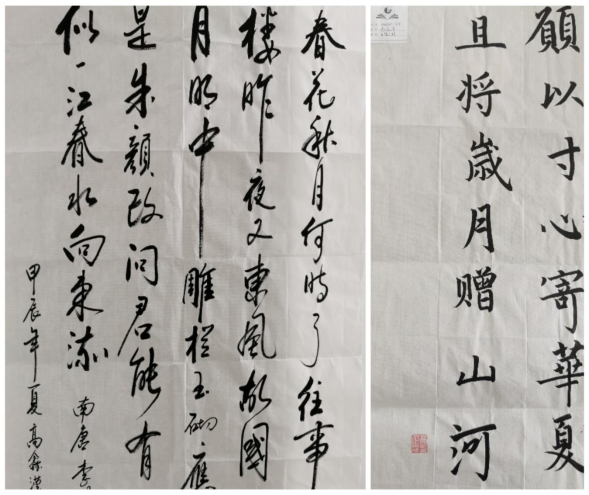 春花秋月何时了往事
楼昨夜又東風故國
月明中雕栏玉砌應
是朱顔改问君能有
似一江春水向東流 南唐李
甲辰年夏高鑫
願以寸心寄華夏
且将歲月赠山河